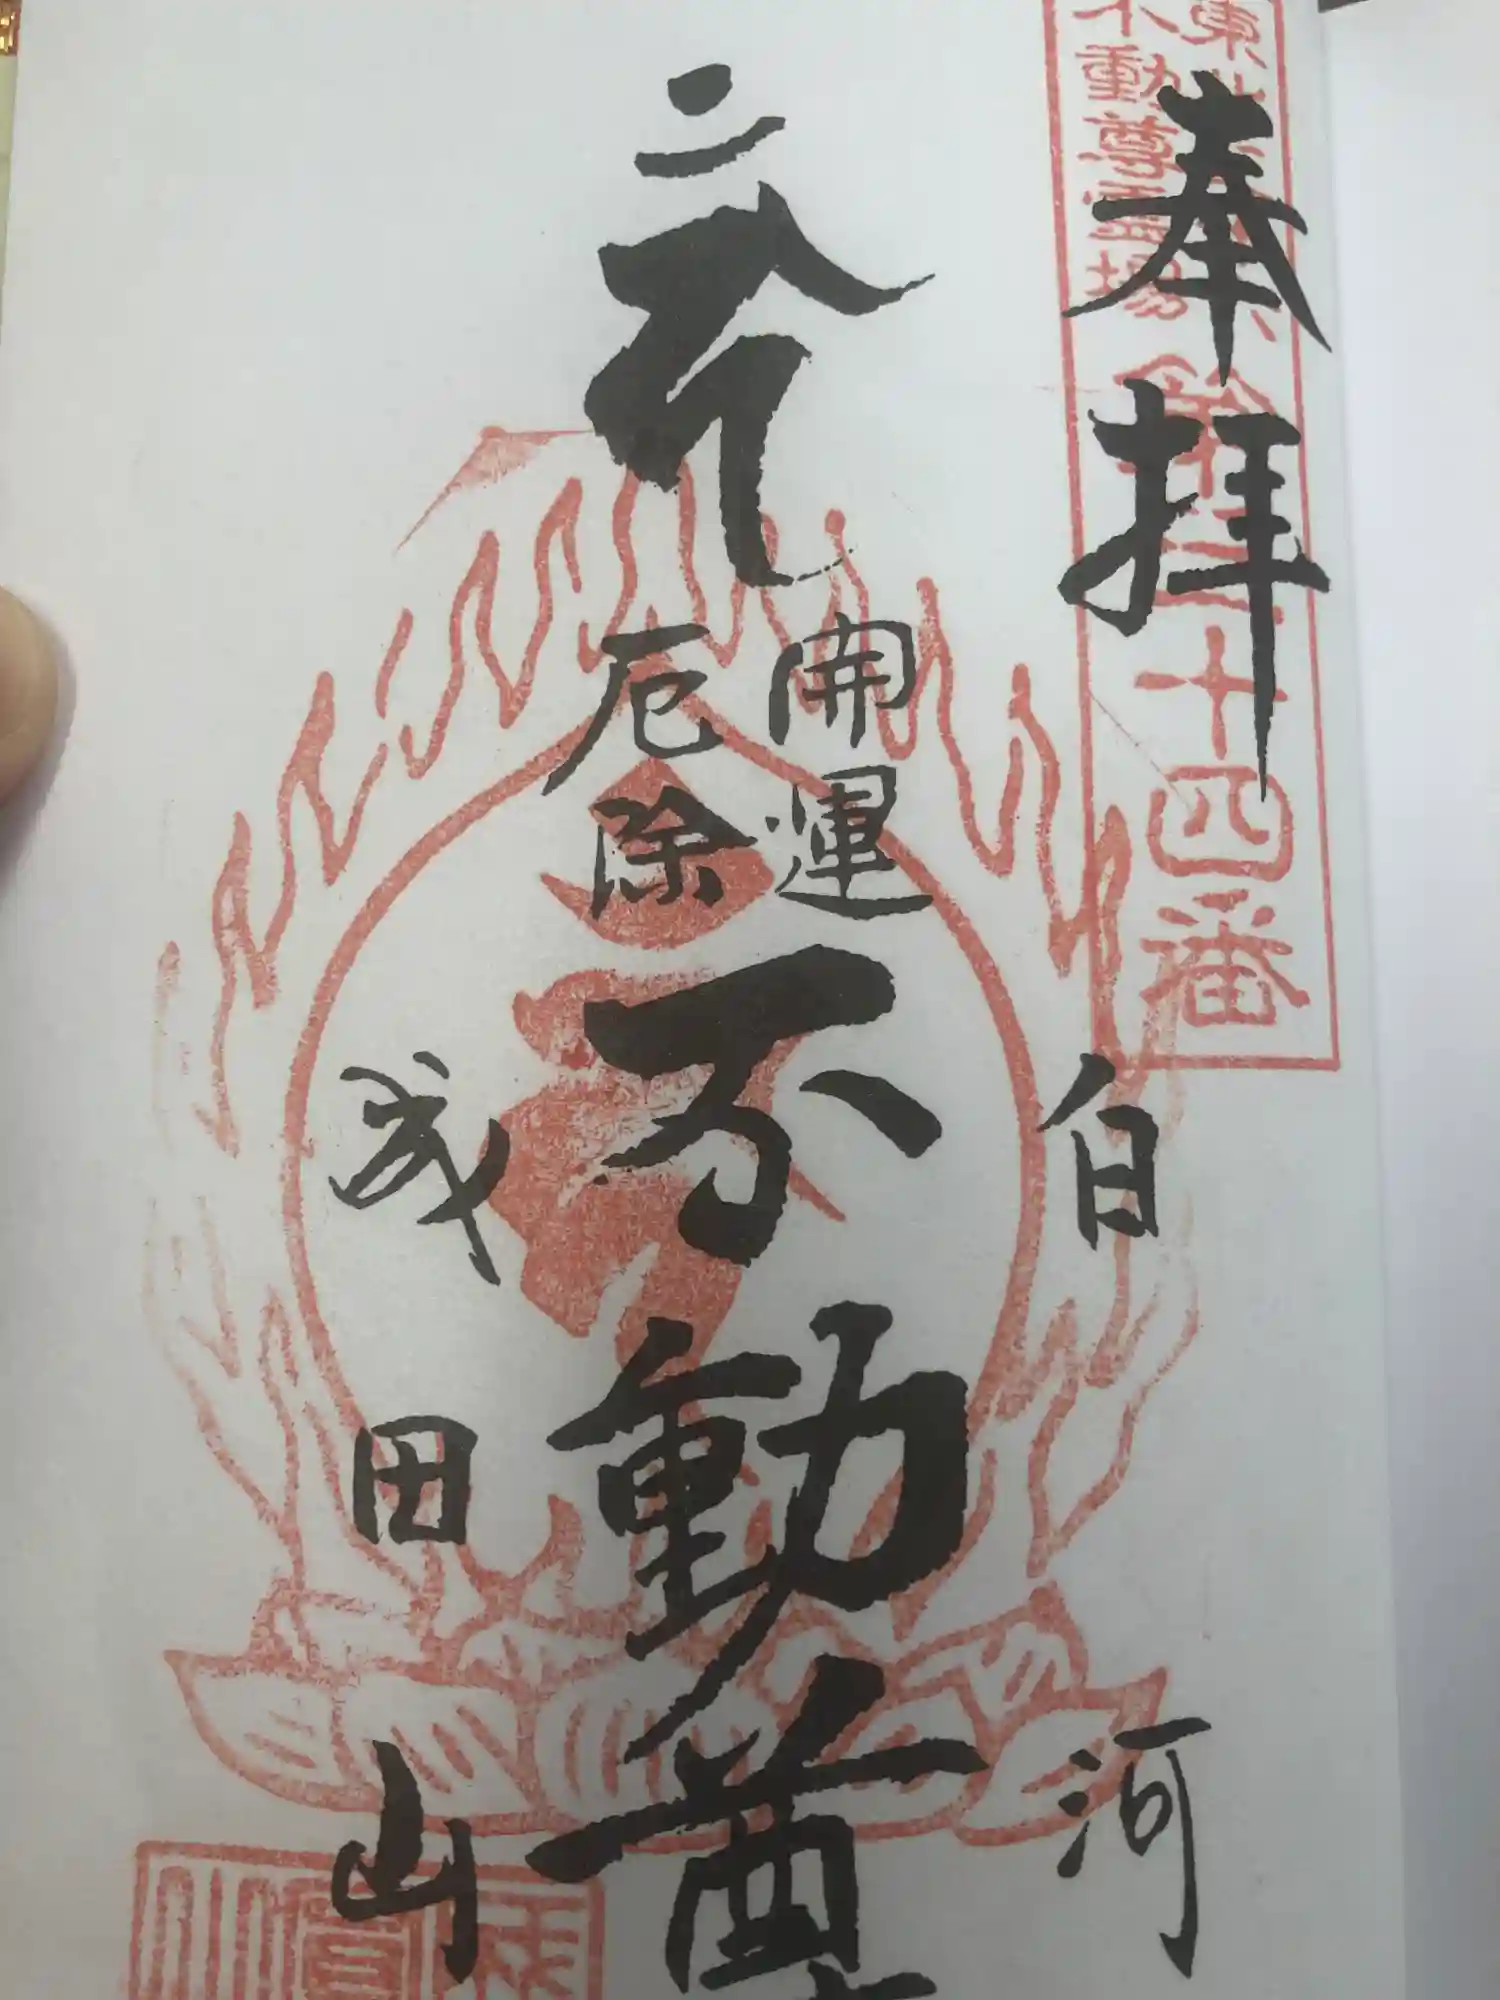 奉拝
東北三十六
不動尊霊場
第三十四番
白河
開運
厄除
不動尊
成田山